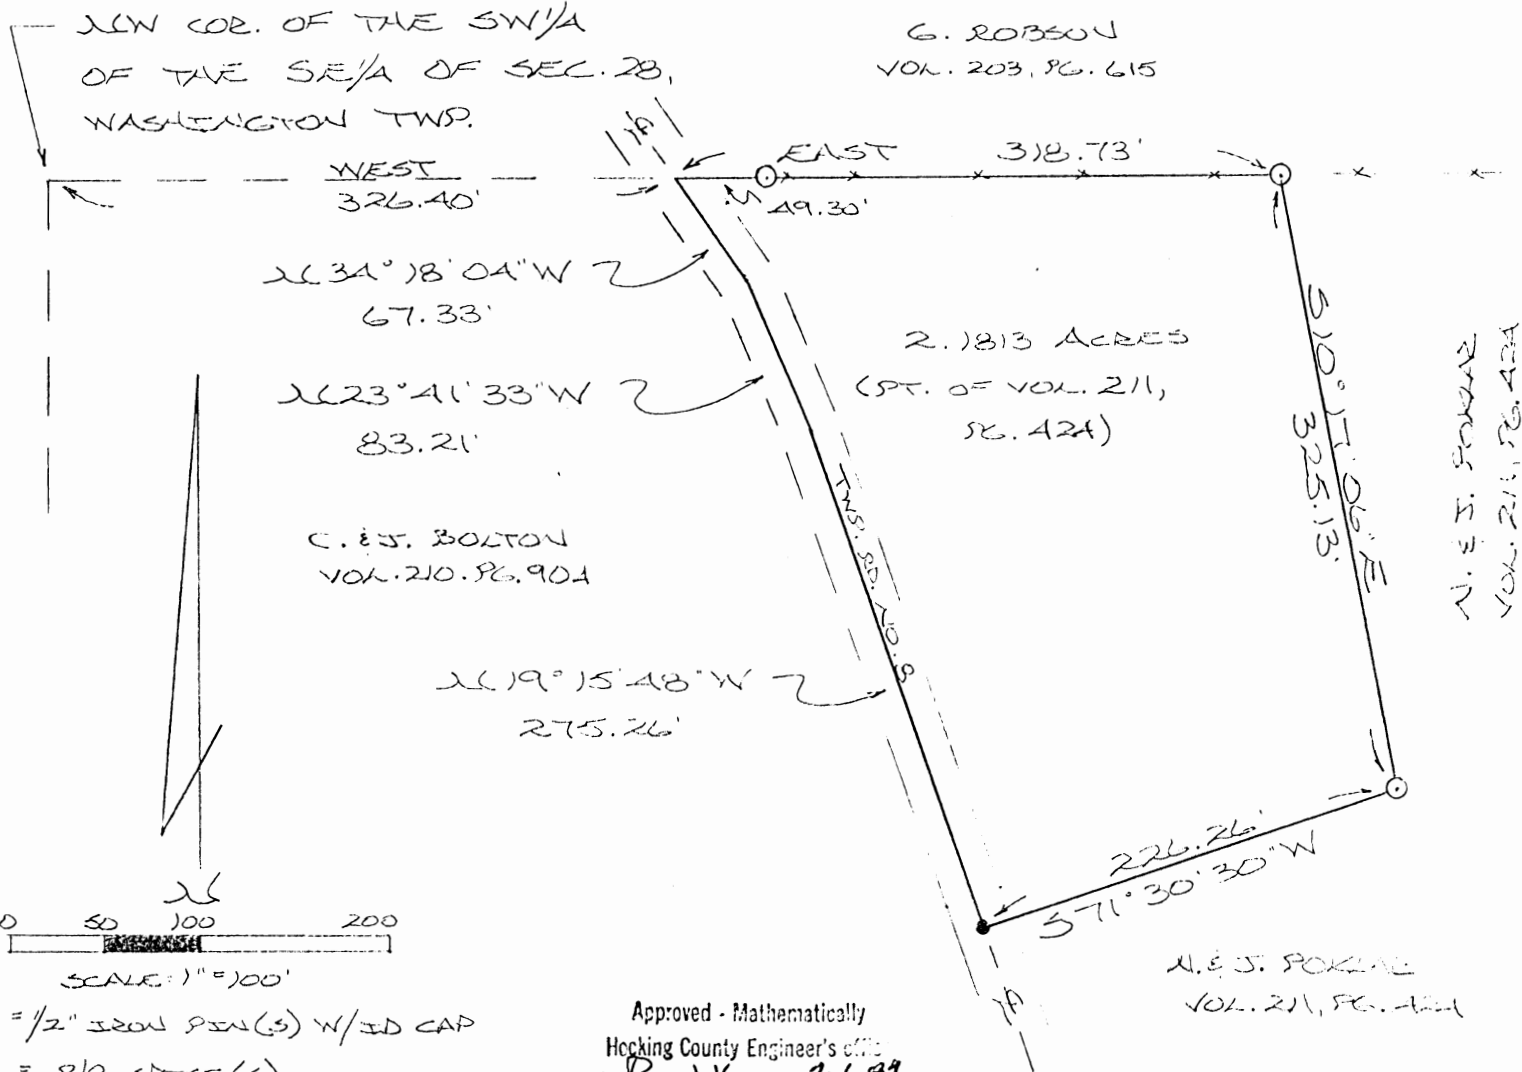 NW COR. OF THE SW1/4
OF THE SE1/4 OF SEC. 28,
WASHINGTON TWP.
G. ROBSON
VOL. 203, PG. 615
WEST
326.40'
EAST 318.73'
49.30'
N 34° 18' 04" W
67.33'
N 23° 41' 33" W
83.21'
2.1813 ACRES
(PT. OF VOL. 211,
PG. 424)
S 10° 17' 06" E
325.13'
N. & J.
VOL. 211, PG. 424
C. & J. BOLTON
VOL. 210. PG. 904
TWP. RD. NO. 8
N 19° 15' 48" W
275.26'
226.26'
S 71° 30' 30" W
N
0 50 100 200
SCALE: 1" = 100'
= 1/2" IRON PIN(S) W/ID CAP
N. & J.
VOL. 211, PG. 424
Approved - Mathematically
Hocking County Engineer's